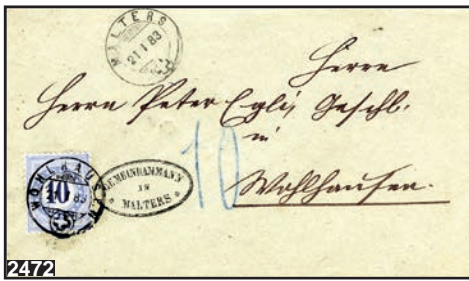 MALTERS
21 I 83
Herrn
Herrn Peter Egli, Geschl.
in
10
Wohlhausen.
WOHLHAUSEN
10
83
GEMEINDAMMANN
IN
MALTERS
2472